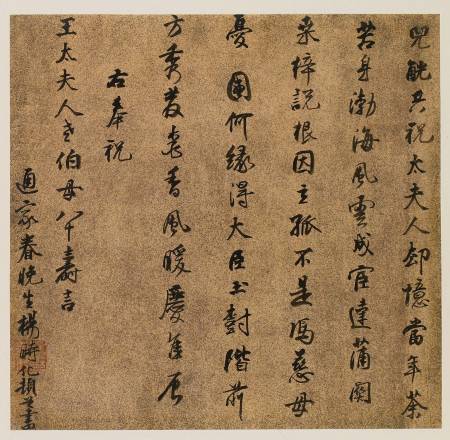 兕觥共祝太夫人却憶當年荼
苦身渤海風雲成宦達蒲關
桒梓說根因立孤不是馮慈母
憂國何緣得大臣玉樹階前
方秀發萱香風暖慶佳辰
右奉祝
王太夫人老伯母八十壽吉
通家眷晚生楊時化頓首書